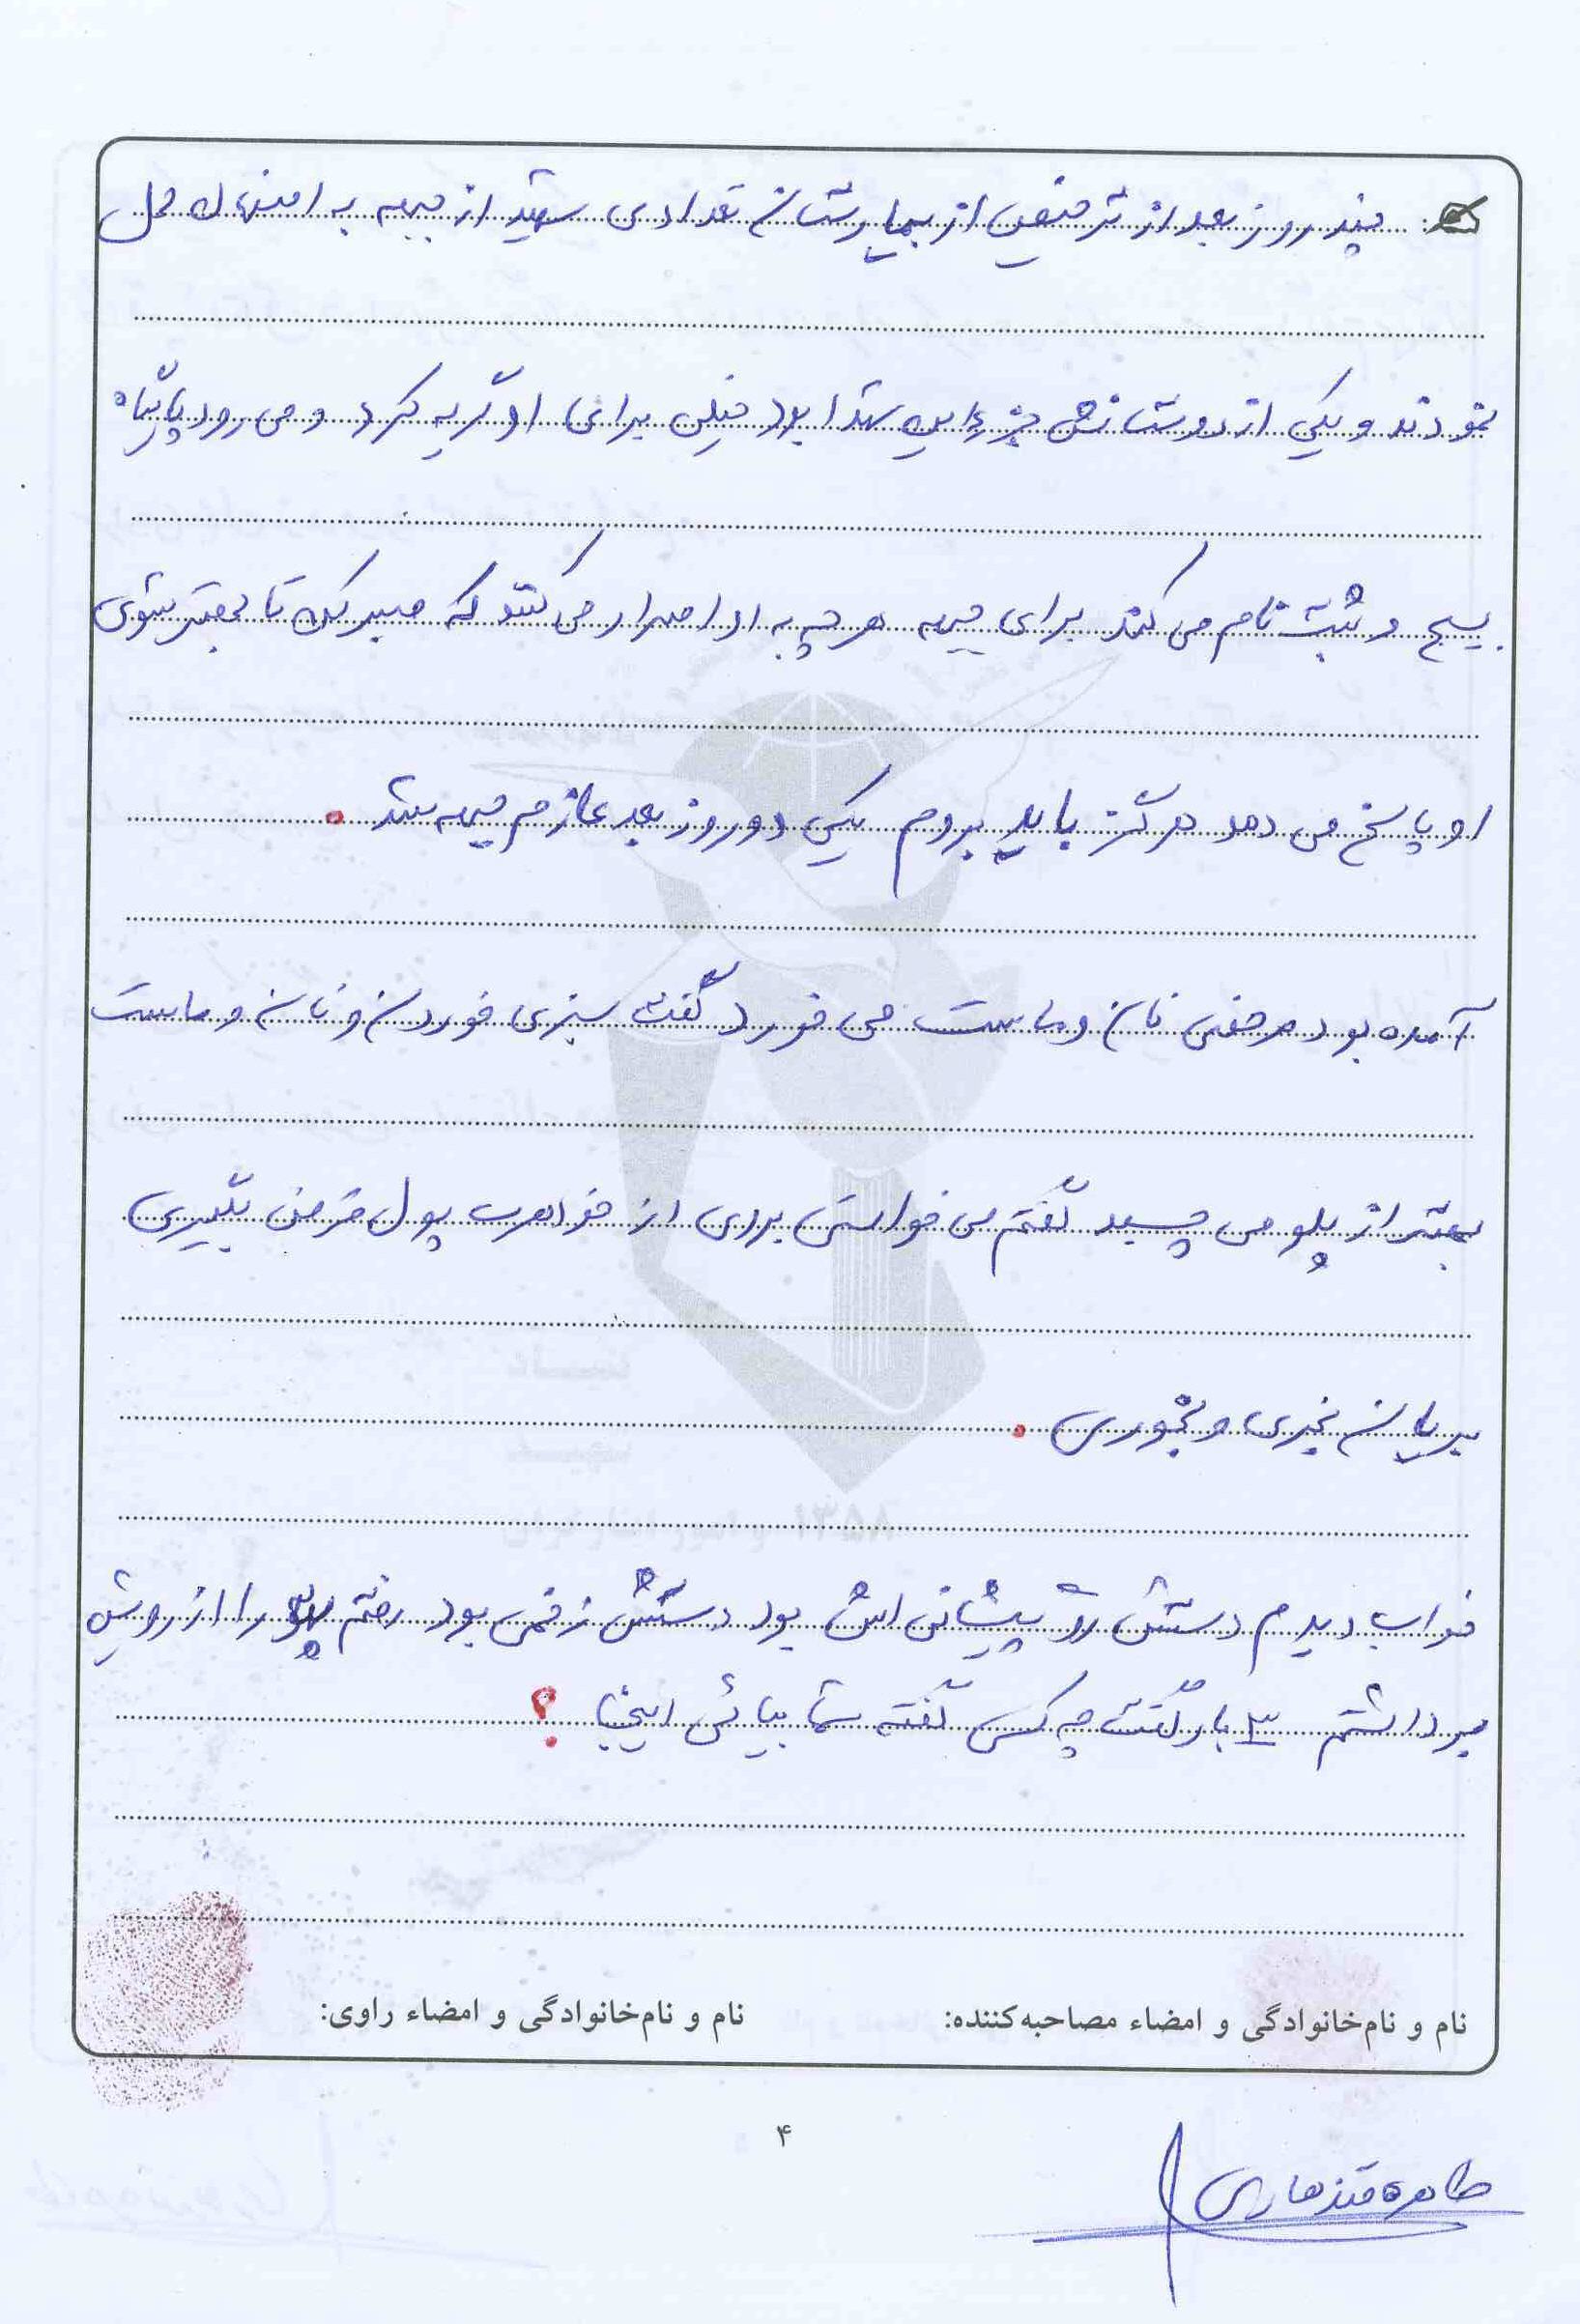 چند روز بعد از ترخیص از بیمارستان تعدادی شهید از جبهه به اصفهان حمل
نمودند و یکی از دوستانش جزء این شهدا بود خیلی برای او گریه کرد و می رود پایگاه
بسیج و ثبت نام می کند برای جبهه هر چه به او اصرار می کنند که صبر کن تا بهتر شوی
او پاسخ می دهد هرگز باید بروم یکی دو روز بعد عازم جبهه شد .
آمده بود مرخصی نان و ماست می خورد گفت سبزی خوردن و نان و ماست
بهتر از پلو می چسبد گفتم می خواستی بروی از خواهرت پول قرض بگیری
بریان بخری و بخوری .
خواب دیدم دستش رو پیشانی اش بود دستش زخمی بود رفتم پتو را از رویش
برداشتم ۳ بار گفت چه کسی گفته شما بیائی اینجا ؟
نام و نام‌خانوادگی و امضاء مصاحبه‌کننده: نام و نام‌خانوادگی و امضاء راوی:
۴
طاهره قندهاری
۱۳۵۸